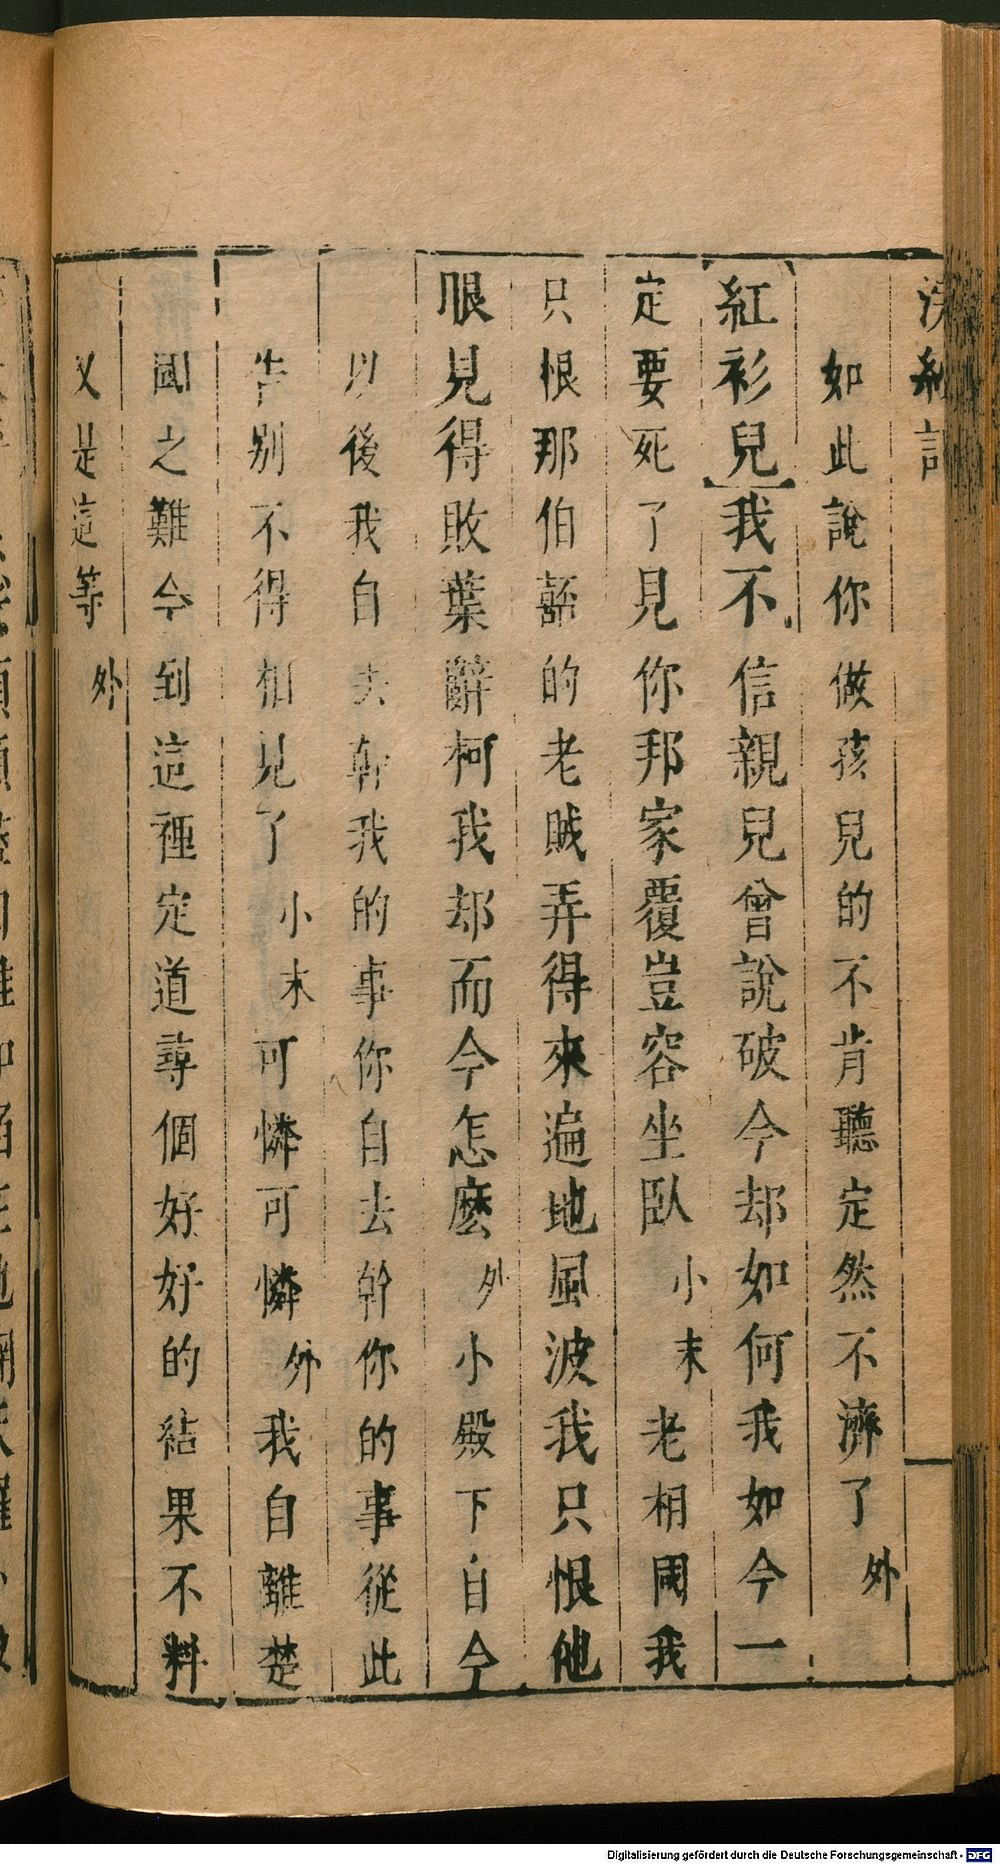 浣紗記
如此說你做孩兒的不肯聽定然不濟了外
紅衫兒我不信親兒曾說破今却如何我如今一
定要死了見你邦家覆豈容坐臥小末老相國我
只恨那伯嚭的老賊弄得來遍地風波我只恨他
眼見得敗葉辭柯我却而今怎麽外小殿下自今
以後我自去幹我的事你自去幹你的事從此
告别不得相見了小末可憐可憐外我自離楚
國之難今到這裡定道尋個好好的結果不料
又是這等外
Digitalisierung gefördert durch die Deutsche Forschungsgemeinschaft - DFG